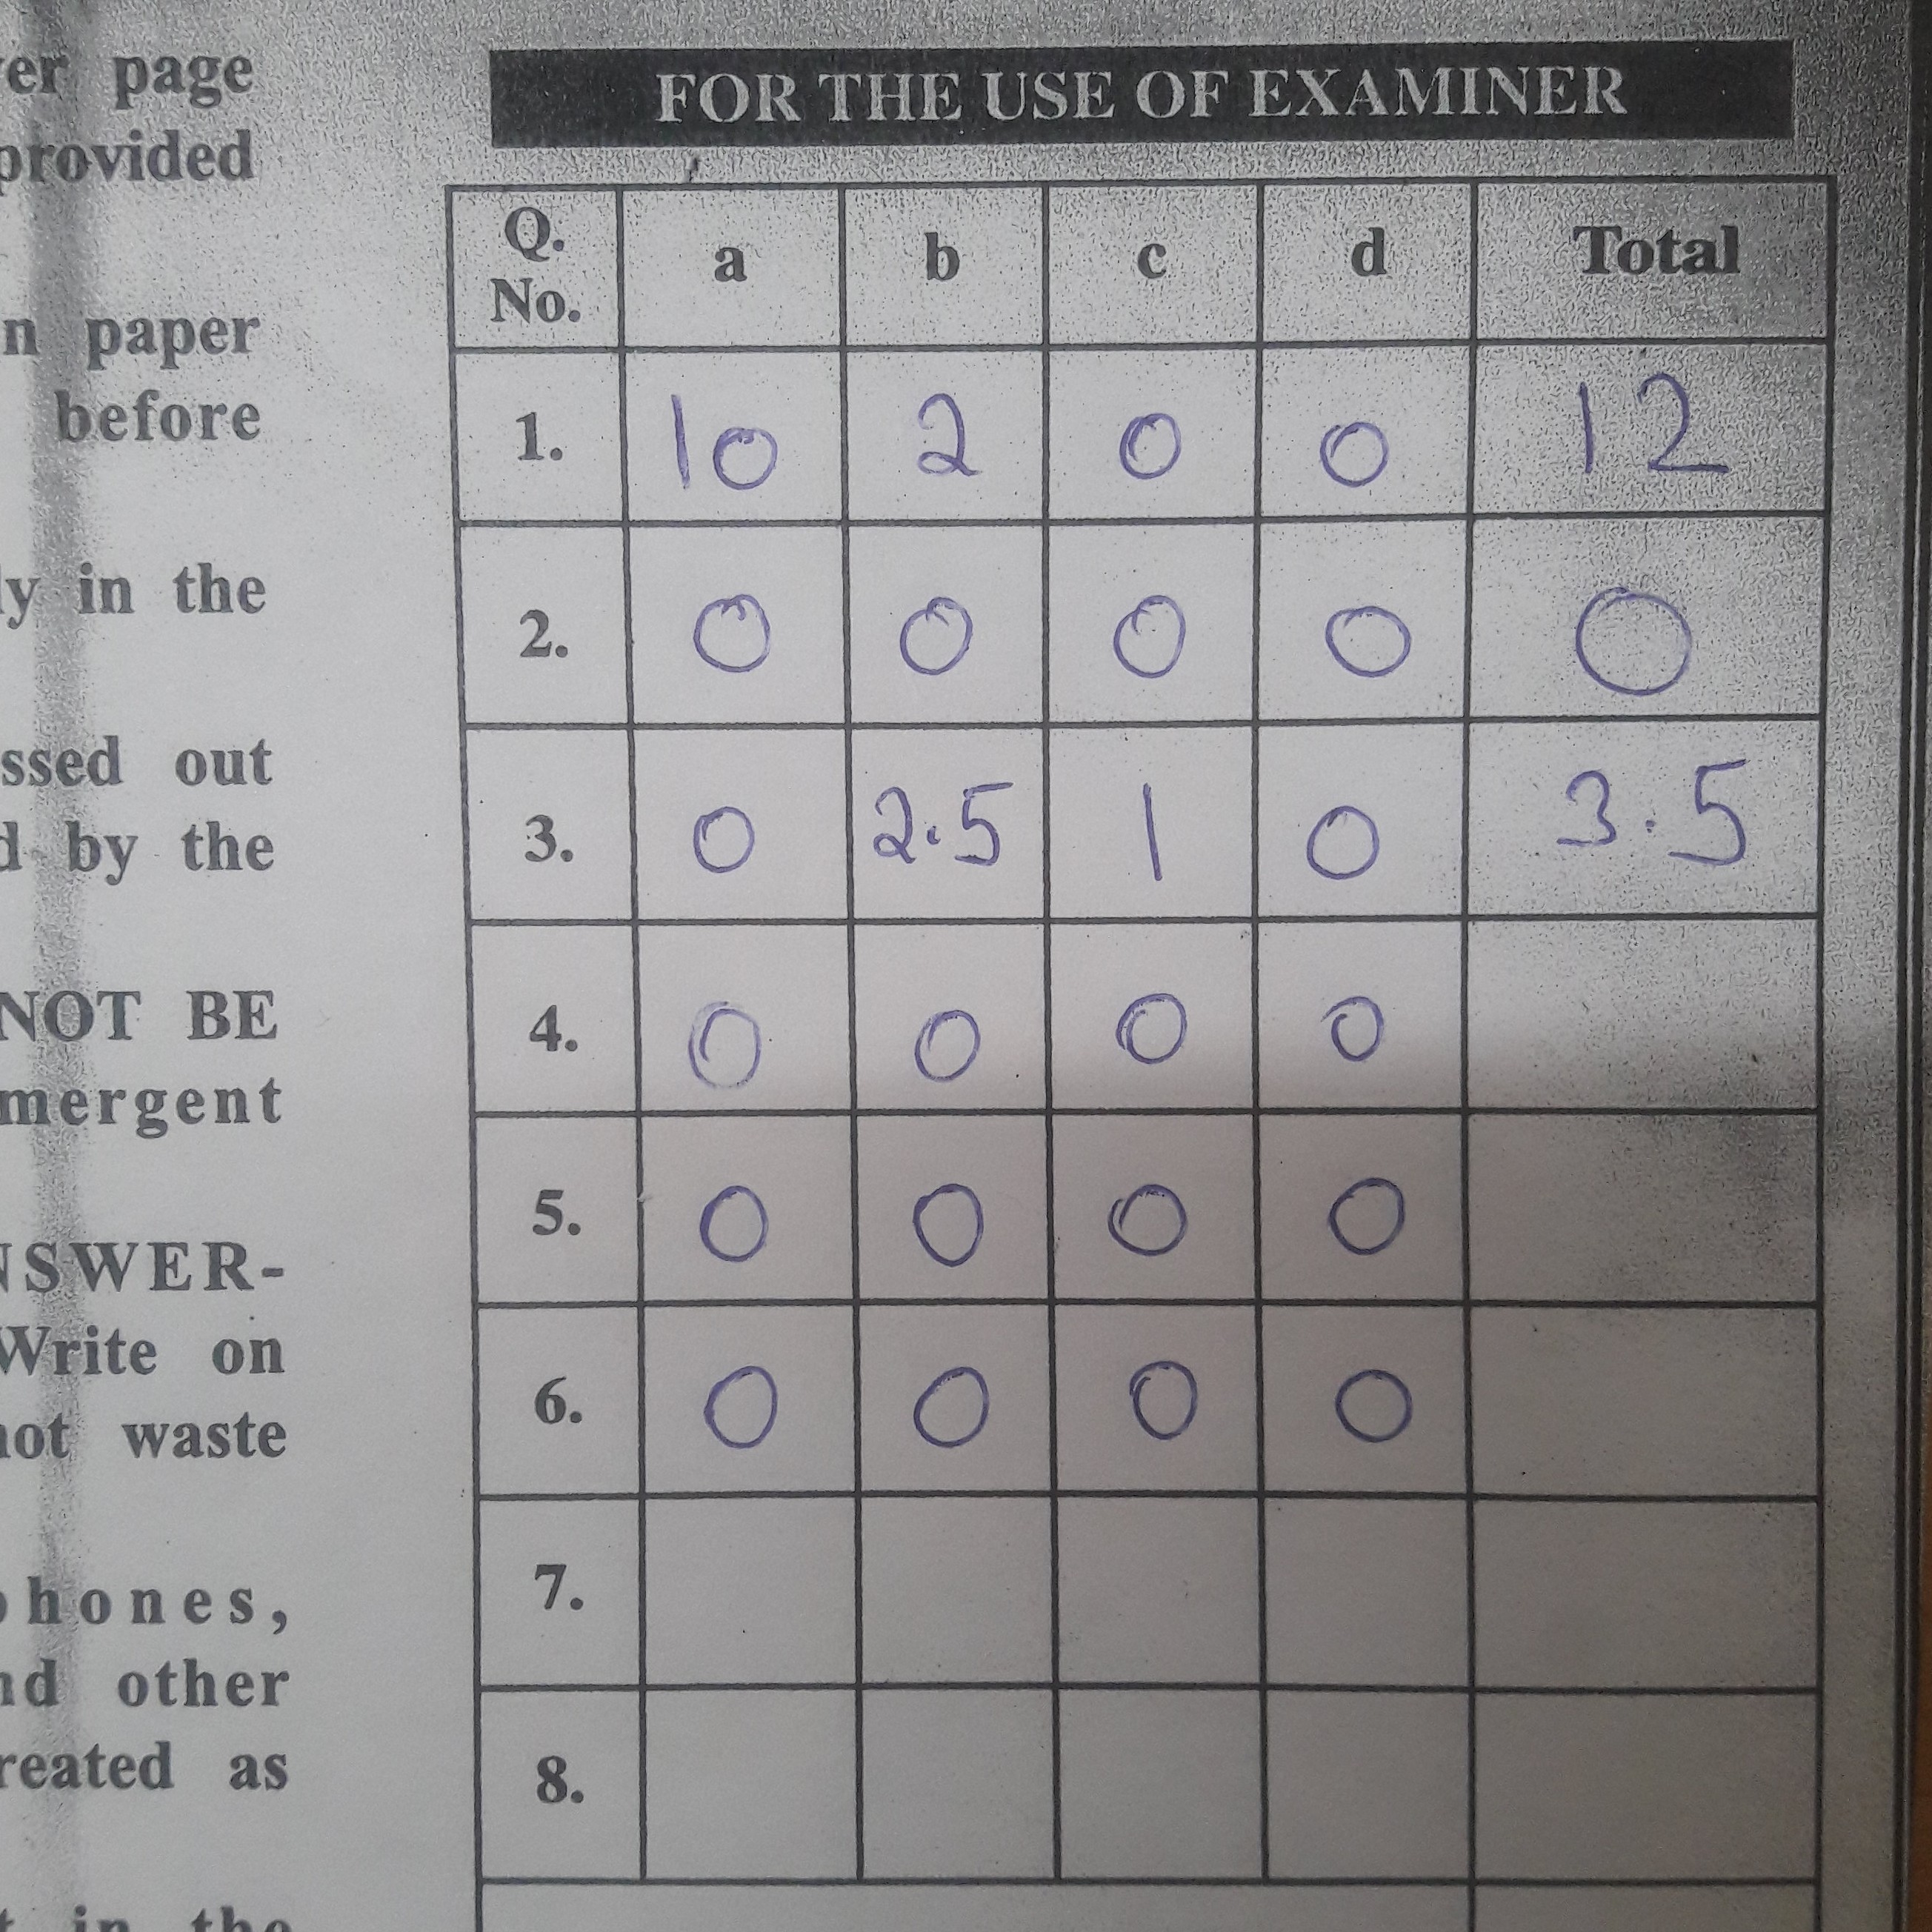 er page
provided
n paper
before
y in the
ssed out
d by the
NOT BE
mergent
NSWER-
Write on
not waste
phones,
nd other
reated as
in the
FOR THE USE OF EXAMINER
Q. No. a b c d Total
1. 10 2 0 0 12
2. 0 0 0 0 0
3. 0 2.5 1 0 3.5
4. 0 0 0 0
5. 0 0 0 0
6. 0 0 0 0
7.
8.